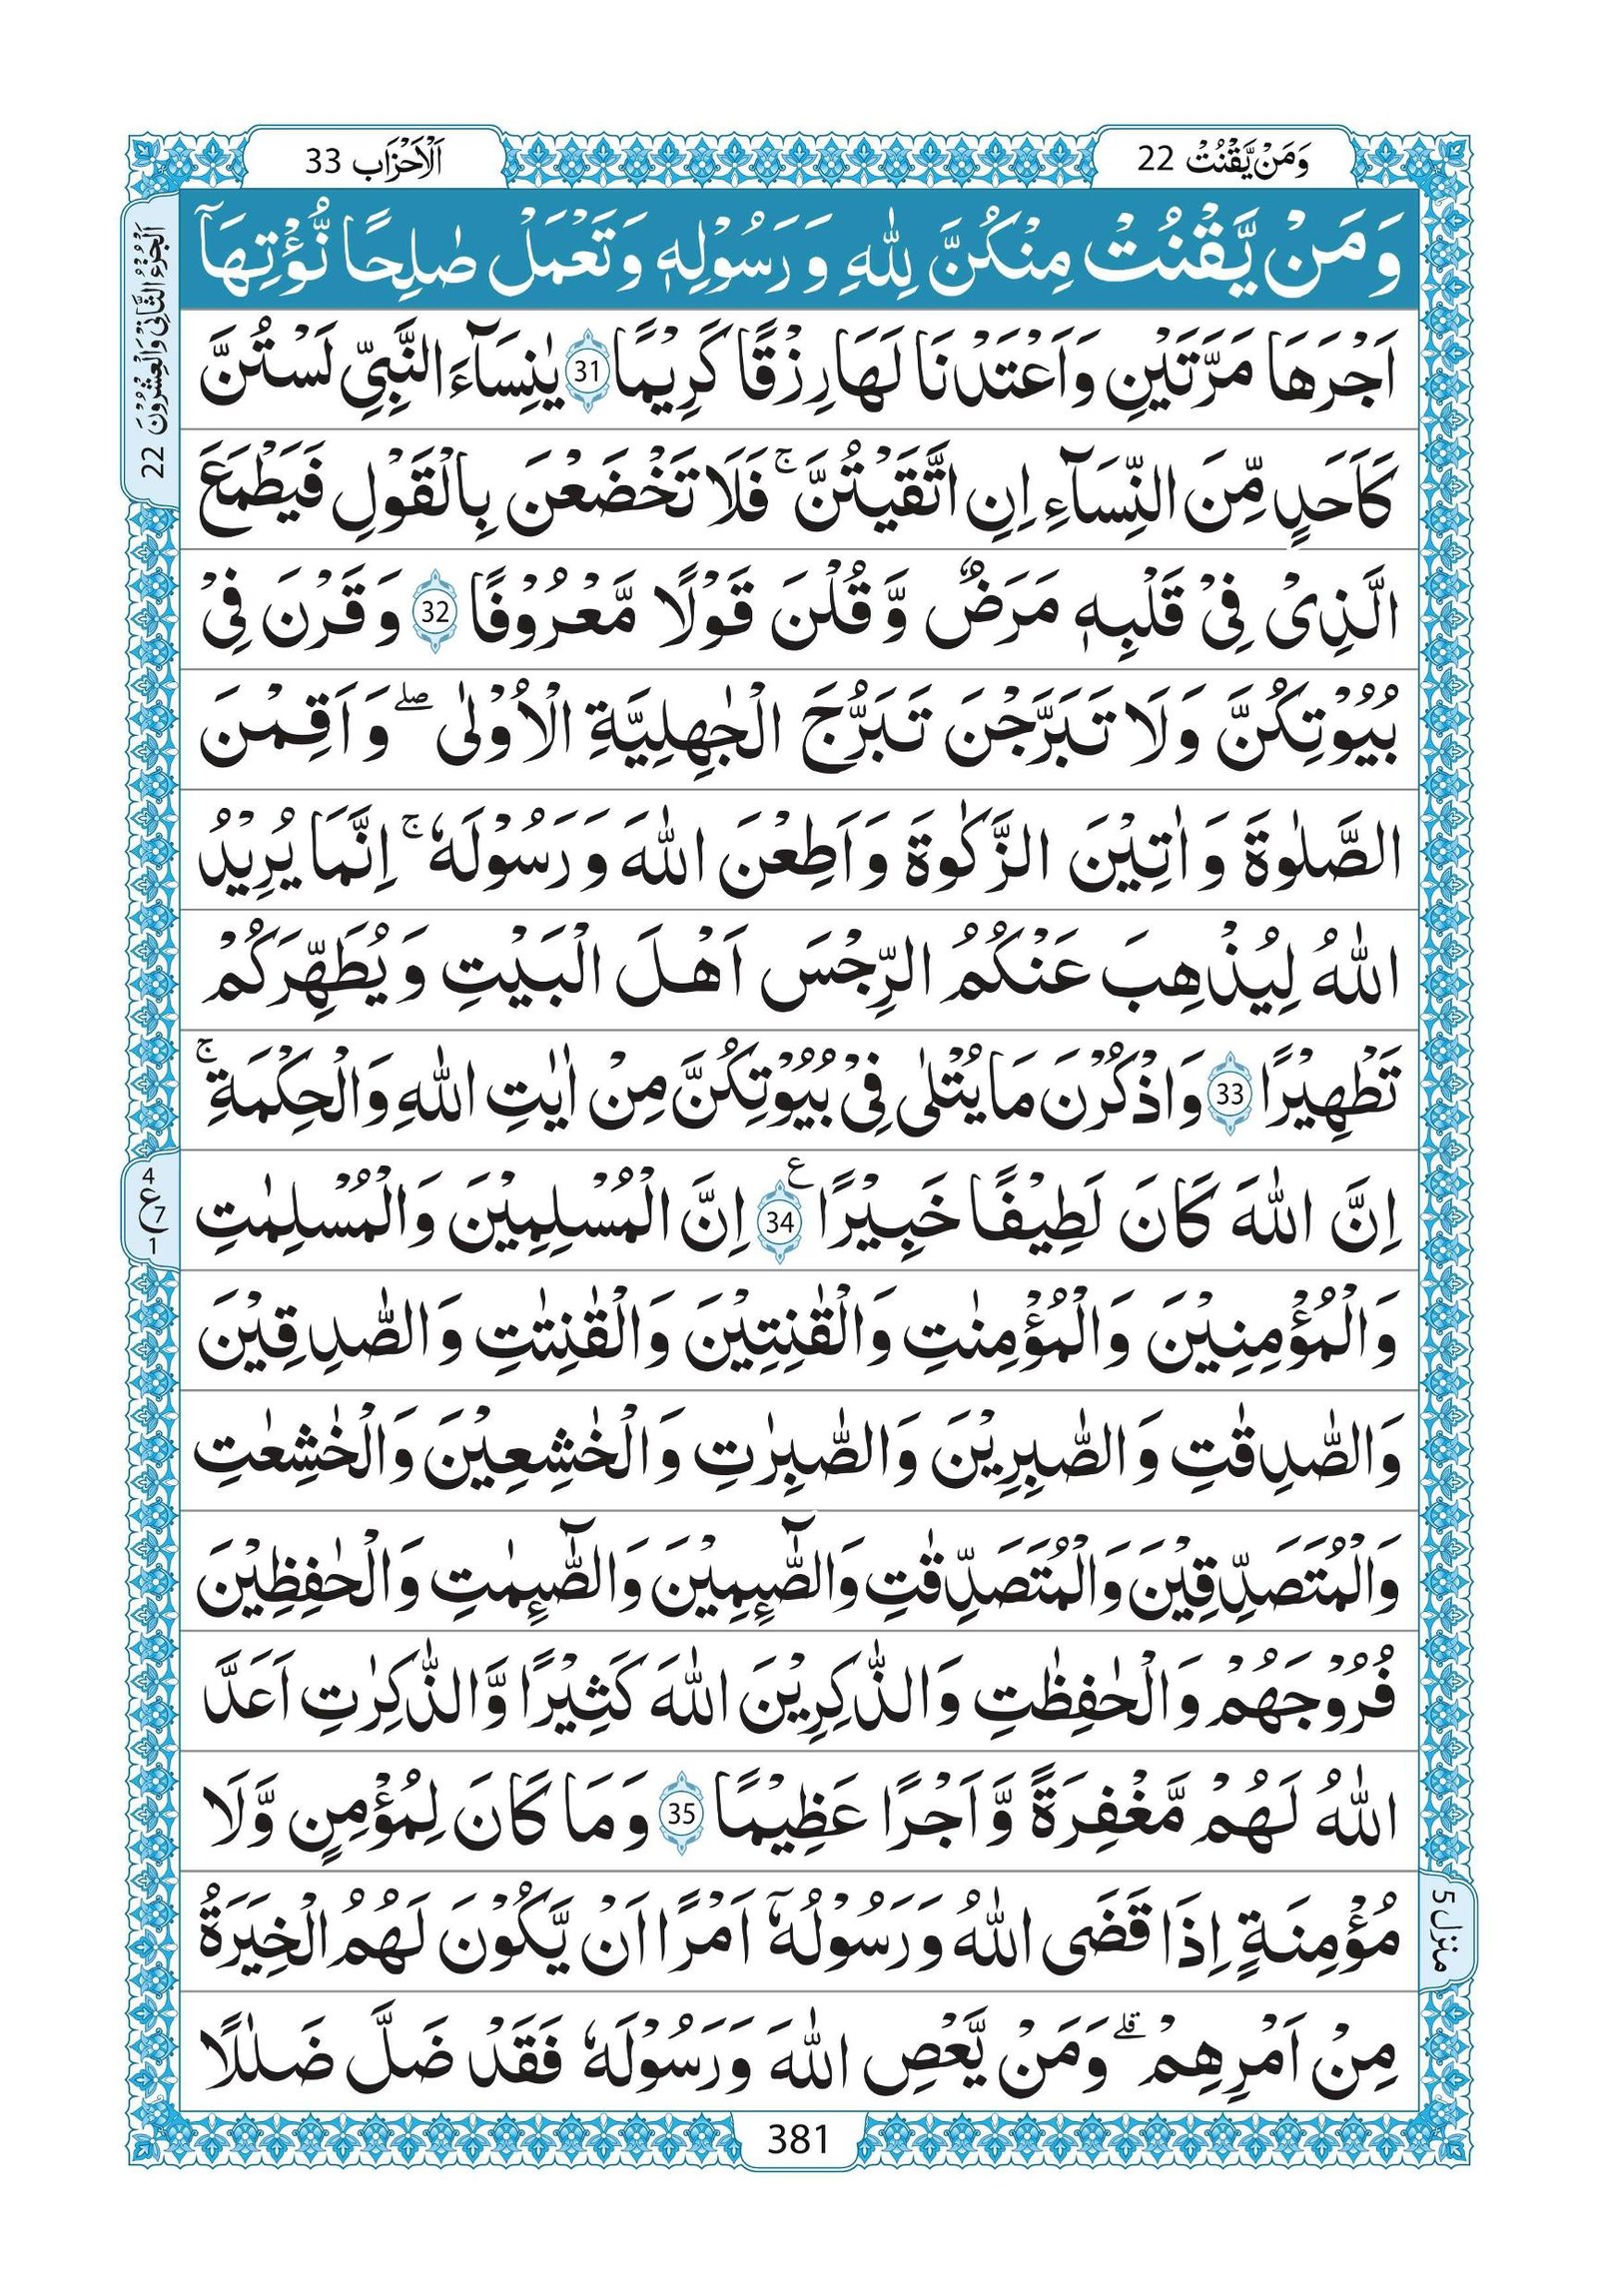 وَمَنْ يَّقْنُتْ 22
اَلْاَحْزَاب 33
اَلْجُزْءُ الثَّانِیْ وَالْعِشْرُوْنَ 22
وَمَنْ يَّقْنُتْ مِنْكُنَّ لِلّٰهِ وَرَسُوْلِهٖ وَتَعْمَلْ صٰلِحًا نُّؤْتِهَاۤ
اَجْرَهَا مَرَّتَيْنِ وَاَعْتَدْنَا لَهَا رِزْقًا كَرِيْمًا 31 يٰنِسَآءَ النَّبِىِّ لَسْتُنَّ
كَاَحَدٍ مِّنَ النِّسَآءِ اِنِ اتَّقَيْتُنَّ ۚ فَلَا تَخْضَعْنَ بِالْقَوْلِ فَيَطْمَعَ
الَّذِىْ فِىْ قَلْبِهٖ مَرَضٌ وَّقُلْنَ قَوْلًا مَّعْرُوْفًا 32 وَقَرْنَ فِىْ
بُيُوْتِكُنَّ وَلَا تَبَرَّجْنَ تَبَرُّجَ الْجٰهِلِيَّةِ الْاُوْلٰى ۖ وَاَقِمْنَ
الصَّلٰوةَ وَاٰتِيْنَ الزَّكٰوةَ وَاَطِعْنَ اللّٰهَ وَرَسُوْلَهٗ ۚ اِنَّمَا يُرِيْدُ
اللّٰهُ لِيُذْهِبَ عَنْكُمُ الرِّجْسَ اَهْلَ الْبَيْتِ وَيُطَهِّرَكُمْ
تَطْهِيْرًا 33 وَاذْكُرْنَ مَا يُتْلٰى فِىْ بُيُوْتِكُنَّ مِنْ اٰيٰتِ اللّٰهِ وَالْحِكْمَةِ ۚ
اِنَّ اللّٰهَ كَانَ لَطِيْفًا خَبِيْرًا ع 34 اِنَّ الْمُسْلِمِيْنَ وَالْمُسْلِمٰتِ
4 ع 7 1
وَالْمُؤْمِنِيْنَ وَالْمُؤْمِنٰتِ وَالْقٰنِتِيْنَ وَالْقٰنِتٰتِ وَالصّٰدِقِيْنَ
وَالصّٰدِقٰتِ وَالصّٰبِرِيْنَ وَالصّٰبِرٰتِ وَالْخٰشِعِيْنَ وَالْخٰشِعٰتِ
وَالْمُتَصَدِّقِيْنَ وَالْمُتَصَدِّقٰتِ وَالصَّآئِمِيْنَ وَالصّٰٓئِمٰتِ وَالْحٰفِظِيْنَ
فُرُوْجَهُمْ وَالْحٰفِظٰتِ وَالذّٰكِرِيْنَ اللّٰهَ كَثِيْرًا وَّالذّٰكِرٰتِ اَعَدَّ
اللّٰهُ لَهُمْ مَّغْفِرَةً وَّاَجْرًا عَظِيْمًا 35 وَمَا كَانَ لِمُؤْمِنٍ وَّلَا
مُؤْمِنَةٍ اِذَا قَضَى اللّٰهُ وَرَسُوْلُهٗۤ اَمْرًا اَنْ يَّكُوْنَ لَهُمُ الْخِيَرَةُ
منزل 5
مِنْ اَمْرِهِمْ ۗ وَمَنْ يَّعْصِ اللّٰهَ وَرَسُوْلَهٗ فَقَدْ ضَلَّ ضَلٰلًا
381